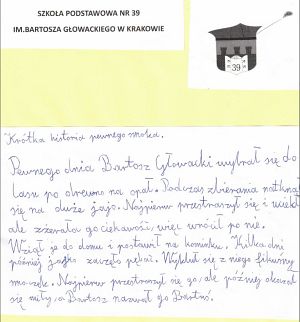 SZKOŁA PODSTAWOWA NR 39
IM.BARTOSZA GŁOWACKIEGO W KRAKOWIE
39
Krótka historia pewnego smoka.
Pewnego dnia Bartosz Głowacki wybrał się do
lasu po drewno na opał. Podczas zbierania natknął
się na duże jajo. Najpierw przestraszył się i uciekł
ale zżerała go ciekawość, więc wrócił po nie.
Wziął je do domu i postawił na kominku. Kilka dni
później jajko zaczęło pękać. Wykluł się z niego
smoczek. Najpierw przestraszył się go, ale później okazał
się miły, a Bartosz nazwał go Bartuś.